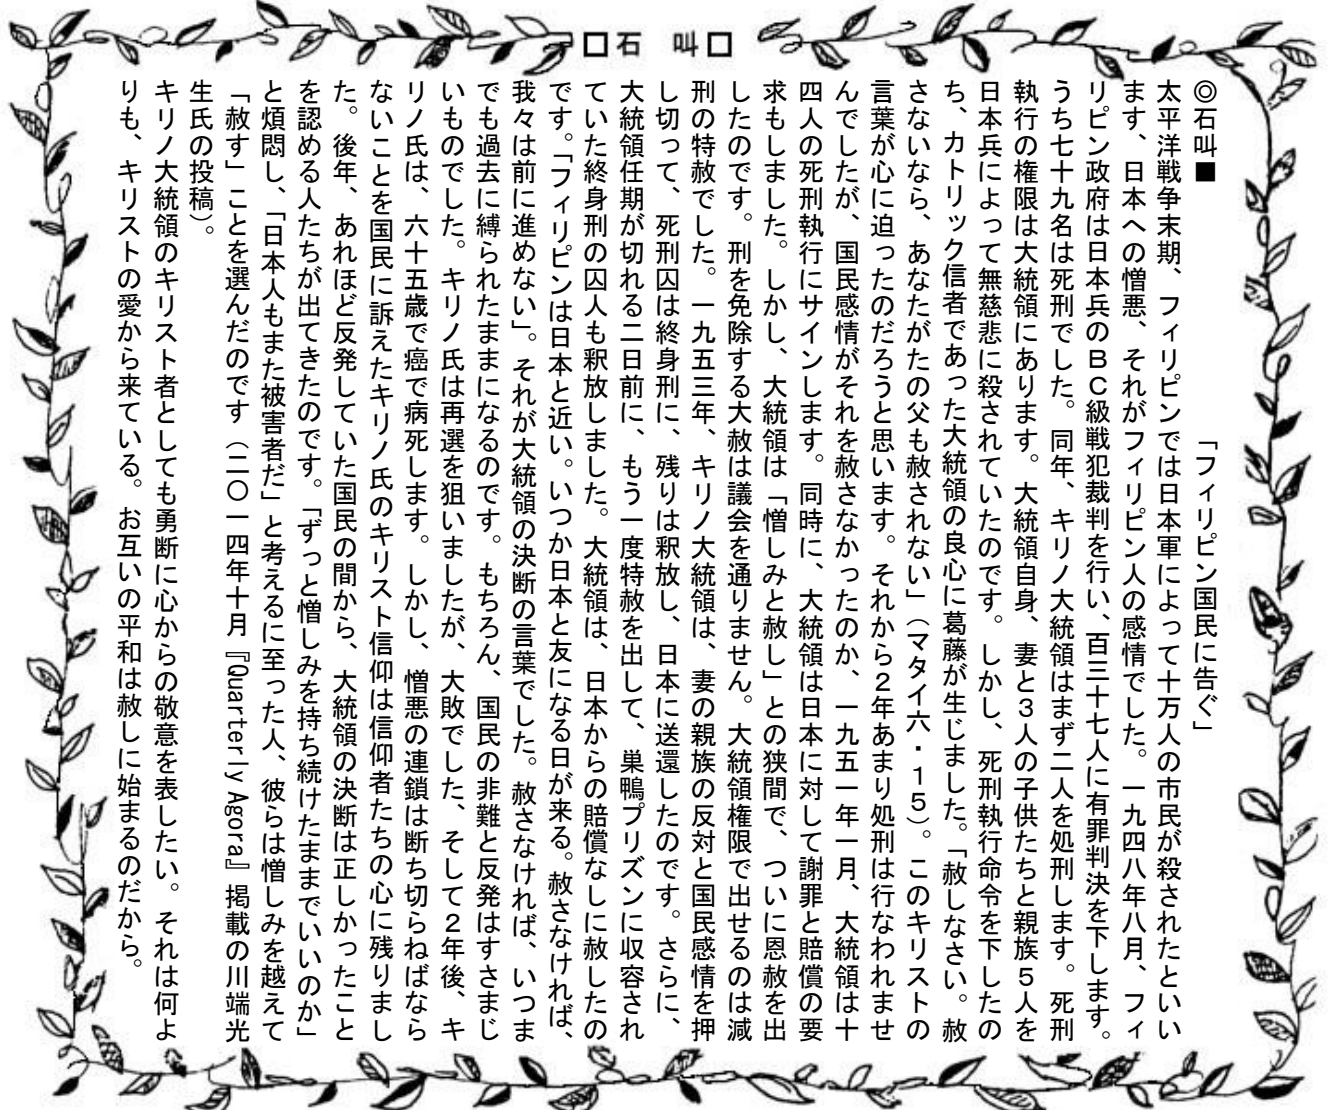 □石　叫□
◎石叫■　　　　　　　　「フィリピン国民に告ぐ」
太平洋戦争末期、フィリピンでは日本軍によって十万人の市民が殺されたといい
ます、日本への憎悪、それがフィリピン人の感情でした。一九四八年八月、フィ
リピン政府は日本兵のＢＣ級戦犯裁判を行い、百三十七人に有罪判決を下します。
うち七十九名は死刑でした。同年、キリノ大統領はまず二人を処刑します。死刑
執行の権限は大統領にあります。大統領自身、妻と３人の子供たちと親族５人を
日本兵によって無慈悲に殺されていたのです。しかし、死刑執行命令を下したの
ち、カトリック信者であった大統領の良心に葛藤が生じました。「赦しなさい。赦
さないなら、あなたがたの父も赦されない」（マタイ六・１５）。このキリストの
言葉が心に迫ったのだろうと思います。それから２年あまり処刑は行なわれませ
んでしたが、国民感情がそれを赦さなかったのか、一九五一年一月、大統領は十
四人の死刑執行にサインします。同時に、大統領は日本に対して謝罪と賠償の要
求もしました。しかし、大統領は「憎しみと赦し」との狭間で、ついに恩赦を出
したのです。刑を免除する大赦は議会を通りません。大統領権限で出せるのは減
刑の特赦でした。一九五三年、キリノ大統領は、妻の親族の反対と国民感情を押
し切って、死刑囚は終身刑に、残りは釈放し、日本に送還したのです。さらに、
大統領任期が切れる二日前に、もう一度特赦を出して、巣鴨プリズンに収容され
ていた終身刑の囚人も釈放しました。大統領は、日本からの賠償なしに赦したの
です。「フィリピンは日本と近い。いつか日本と友になる日が来る。赦さなければ、
我々は前に進めない」。それが大統領の決断の言葉でした。赦さなければ、いつま
でも過去に縛られたままになるのです。もちろん、国民の非難と反発はすさまじ
いものでした。キリノ氏は再選を狙いましたが、大敗でした、そして２年後、キ
リノ氏は、六十五歳で癌で病死します。しかし、憎悪の連鎖は断ち切らねばなら
ないことを国民に訴えたキリノ氏のキリスト信仰は信仰者たちの心に残りまし
た。後年、あれほど反発していた国民の間から、大統領の決断は正しかったこと
を認める人たちが出てきたのです。「ずっと憎しみを持ち続けたままでいいのか」
と煩悶し、「日本人もまた被害者だ」と考えるに至った人、彼らは憎しみを越えて
「赦す」ことを選んだのです（二〇一四年十月『Quarterly Agora』掲載の川端光
生氏の投稿）。
キリノ大統領のキリスト者としても勇断に心からの敬意を表したい。それは何よ
りも、キリストの愛から来ている。お互いの平和は赦しに始まるのだから。